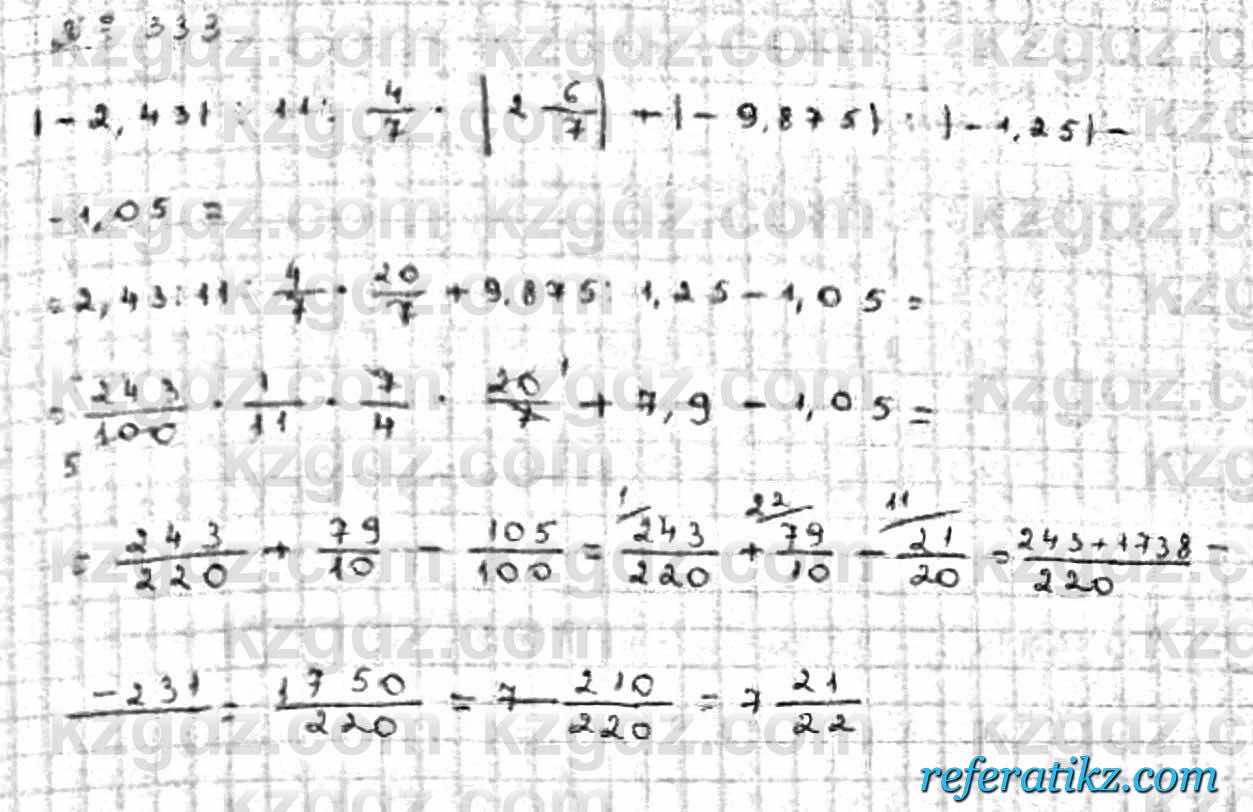 № 333
|-2,43| : 11 : 4/7 · |2 6/7| + |-9,875| : |-1,25| -
- 1,05 =
= 2,43 : 11 : 4/7 · 20/7 + 9,875 : 1,25 - 1,05 =
= 243/100 · 1/11 · 7/4 · 20/7 + 7,9 - 1,05 =
= 243/220 + 79/10 - 105/100 = 243/220 + 79/10 - 21/20 = 243+1738-/220
-231 = 1750/220 = 7 210/220 = 7 21/22
kzgdz.com
referatikz.com